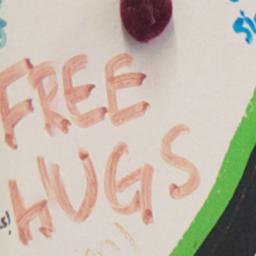 FREE
HUGS